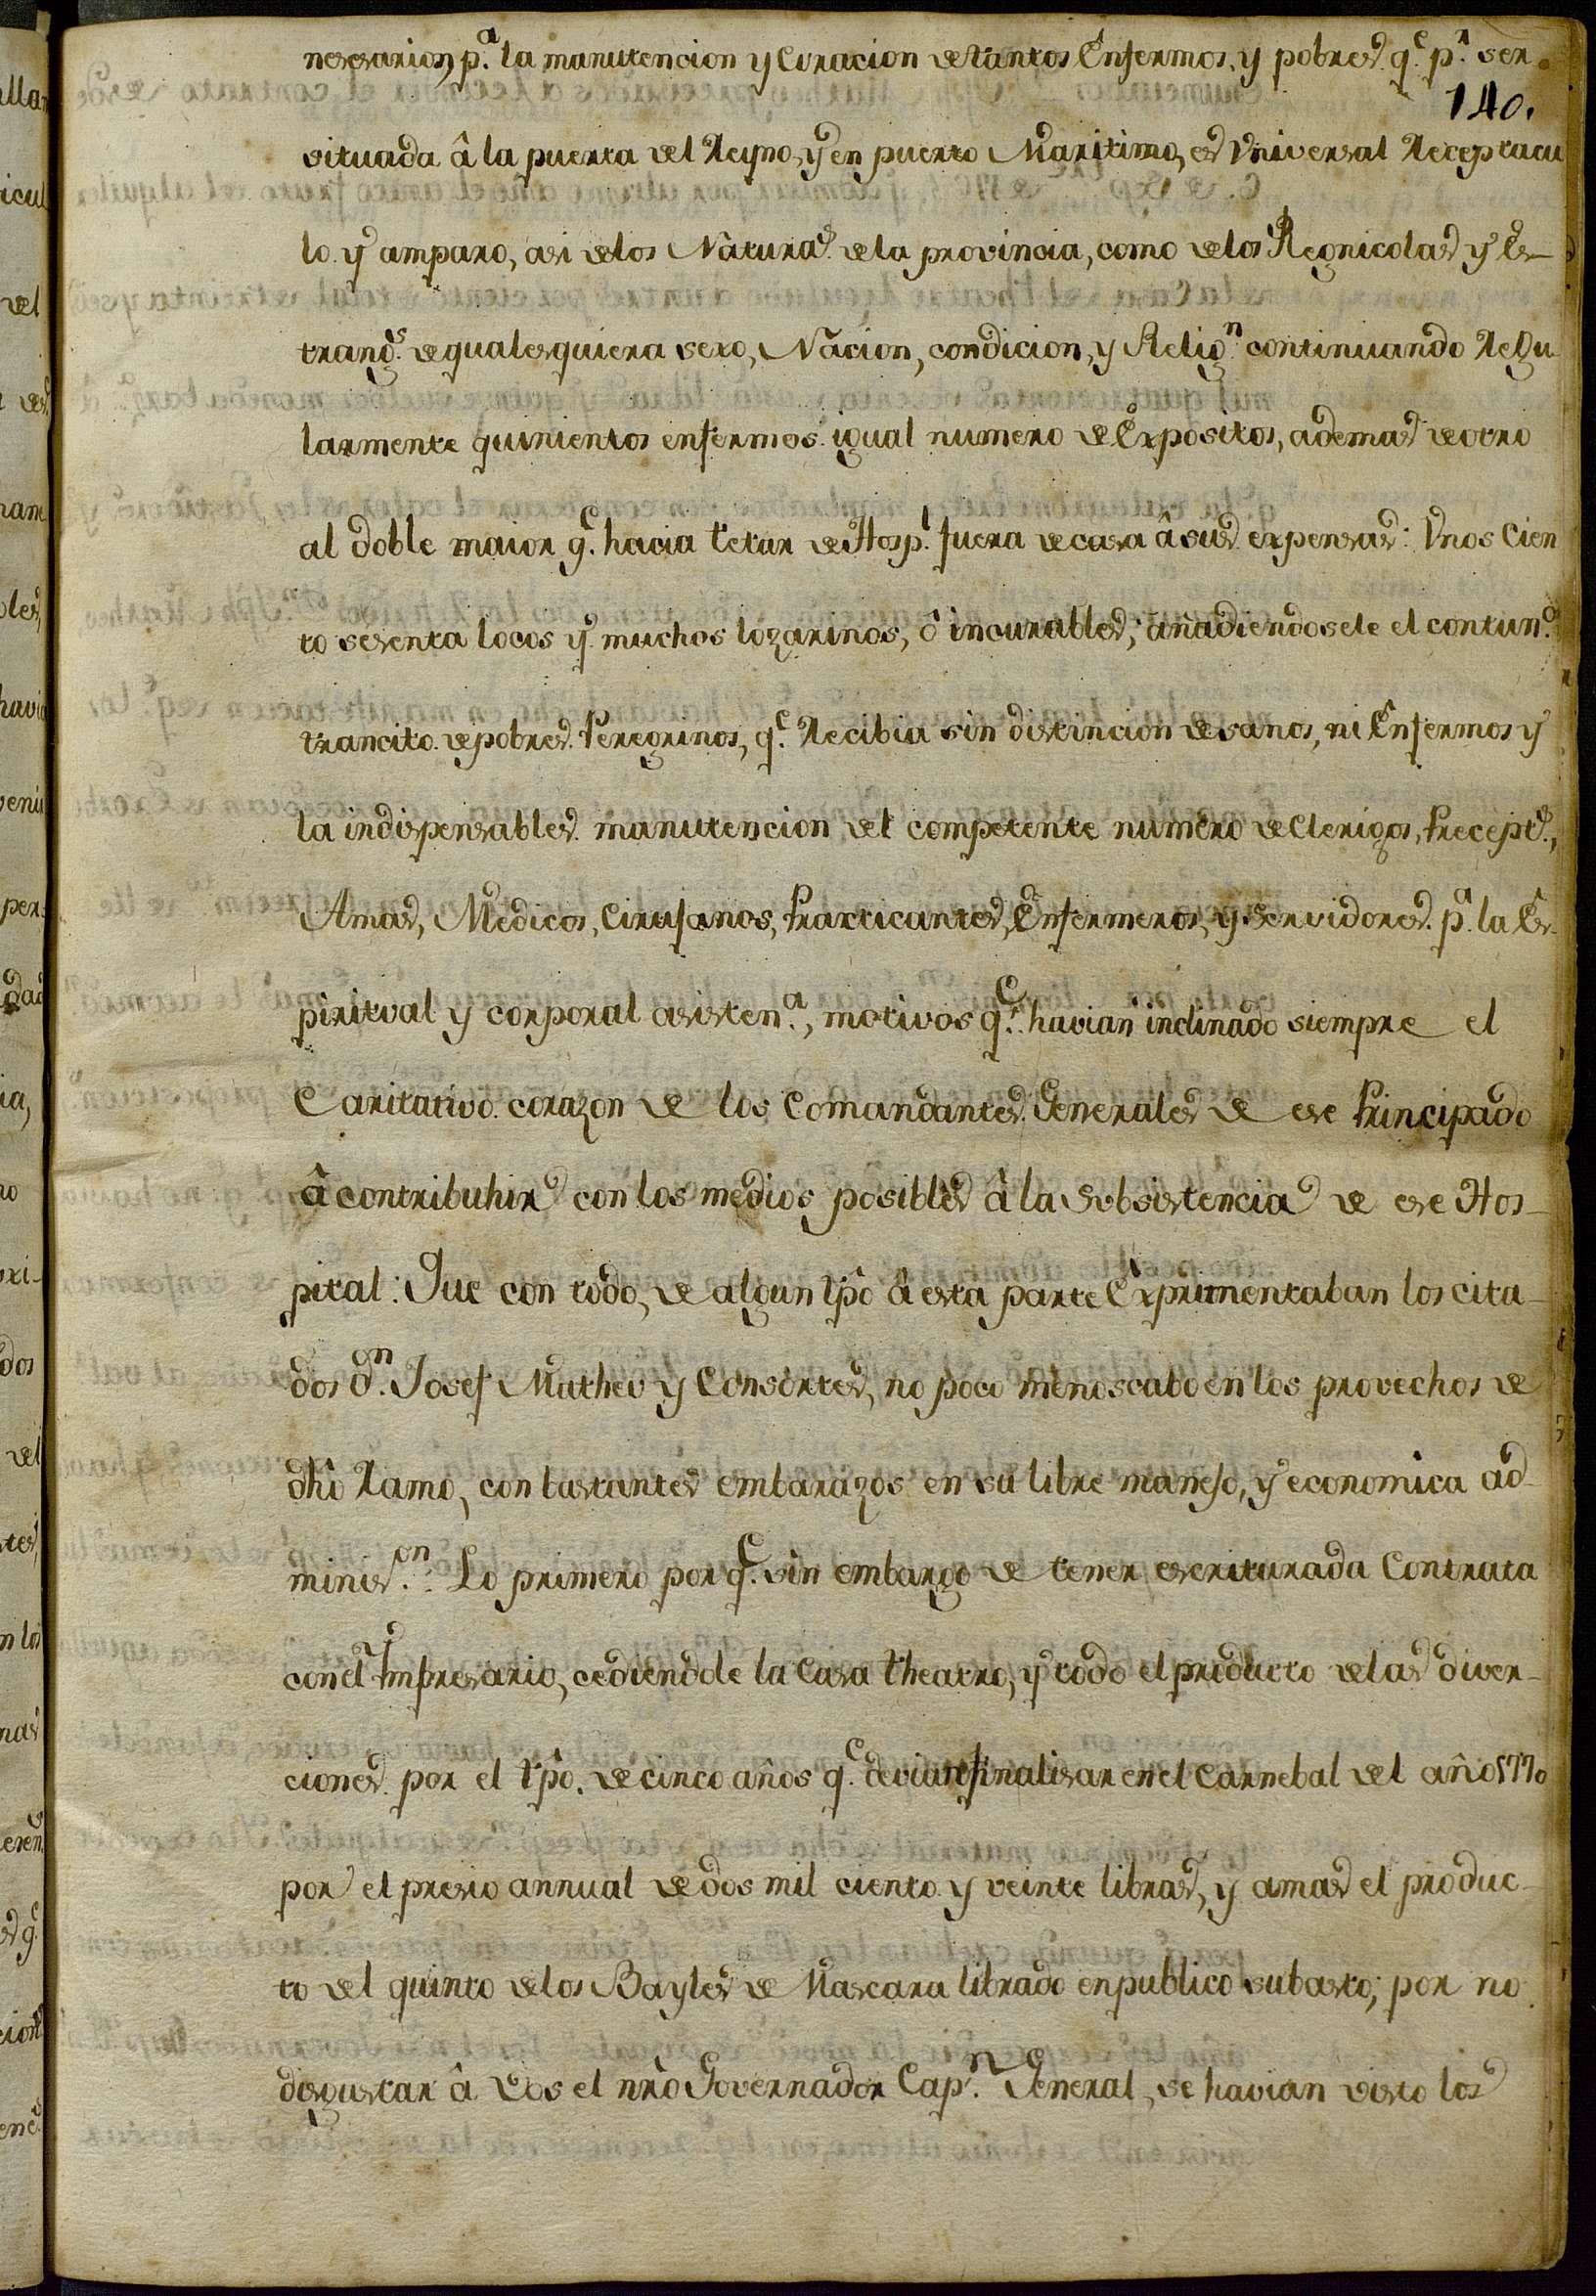 nessesarios, p.ª la manutencion y Curacion de tantos Enfermos, y pobres q.e p.r ser
140.
situada â la puerta del Reyno, y en puerto Maritimo, es Vniversal Receptacu
lo y amparo, asi delos Natura.s de la provincia, como delos Regnicolas y Es-
trang.s de qualesquiera sexo, Nacion, condicion, y Relig.n continuando Regu
larmente quinientos enfermos igual numero de Expositos, ademas de otro
al doble maior q.e hacia tetar de Hosp.l fuera de casa â sus expensas: Vnos Cien
to sesenta locos y muchos lozarinos, ô incurables; añadiendosele el contun.o
trancito de pobres Peregrinos, q.e Recibia sin distincion de sanos, ni Enfermos y
la indispensables manutencion del competente numero de Clerigos, Precept.s,
Amas, Medicos, Cirujanos, Practicantes, Enfermeros, y Servidores p.ª la Es-
piritual y corporal asisten.ª, motivos q.e havian inclinado siempre el
Caritativo corazon de los Comandantes Generales de ese Principado
â contribuhir con los medios posibles â la Subsistencia de ese Hos-
pital: Que con todo, de algun tpô â esta parte Exprimentaban los cita-
dos D.n Josef Matheu y Consortes, no poco menoscabo en los provechos de
dhô Ramo, con bastantes embarazos en su libre manejo, y economica ad-
minis.on: Lo primero por q.e sin embargo de tener escriturada Contrata
con el Ympresario, cediendole la Casa theatro, y todo el producto delas diver-
ciones por el tpô. de cinco años q.e devian finalisar en el Carnebal del año 1770
por el presio annual de dos mil ciento y veinte libras, y amas el produc-
to del quinto delos Bayles de Mascara librado en publico subasto; por no
disgustar â vos el nrô Governador Cap.n General, se havian visto los